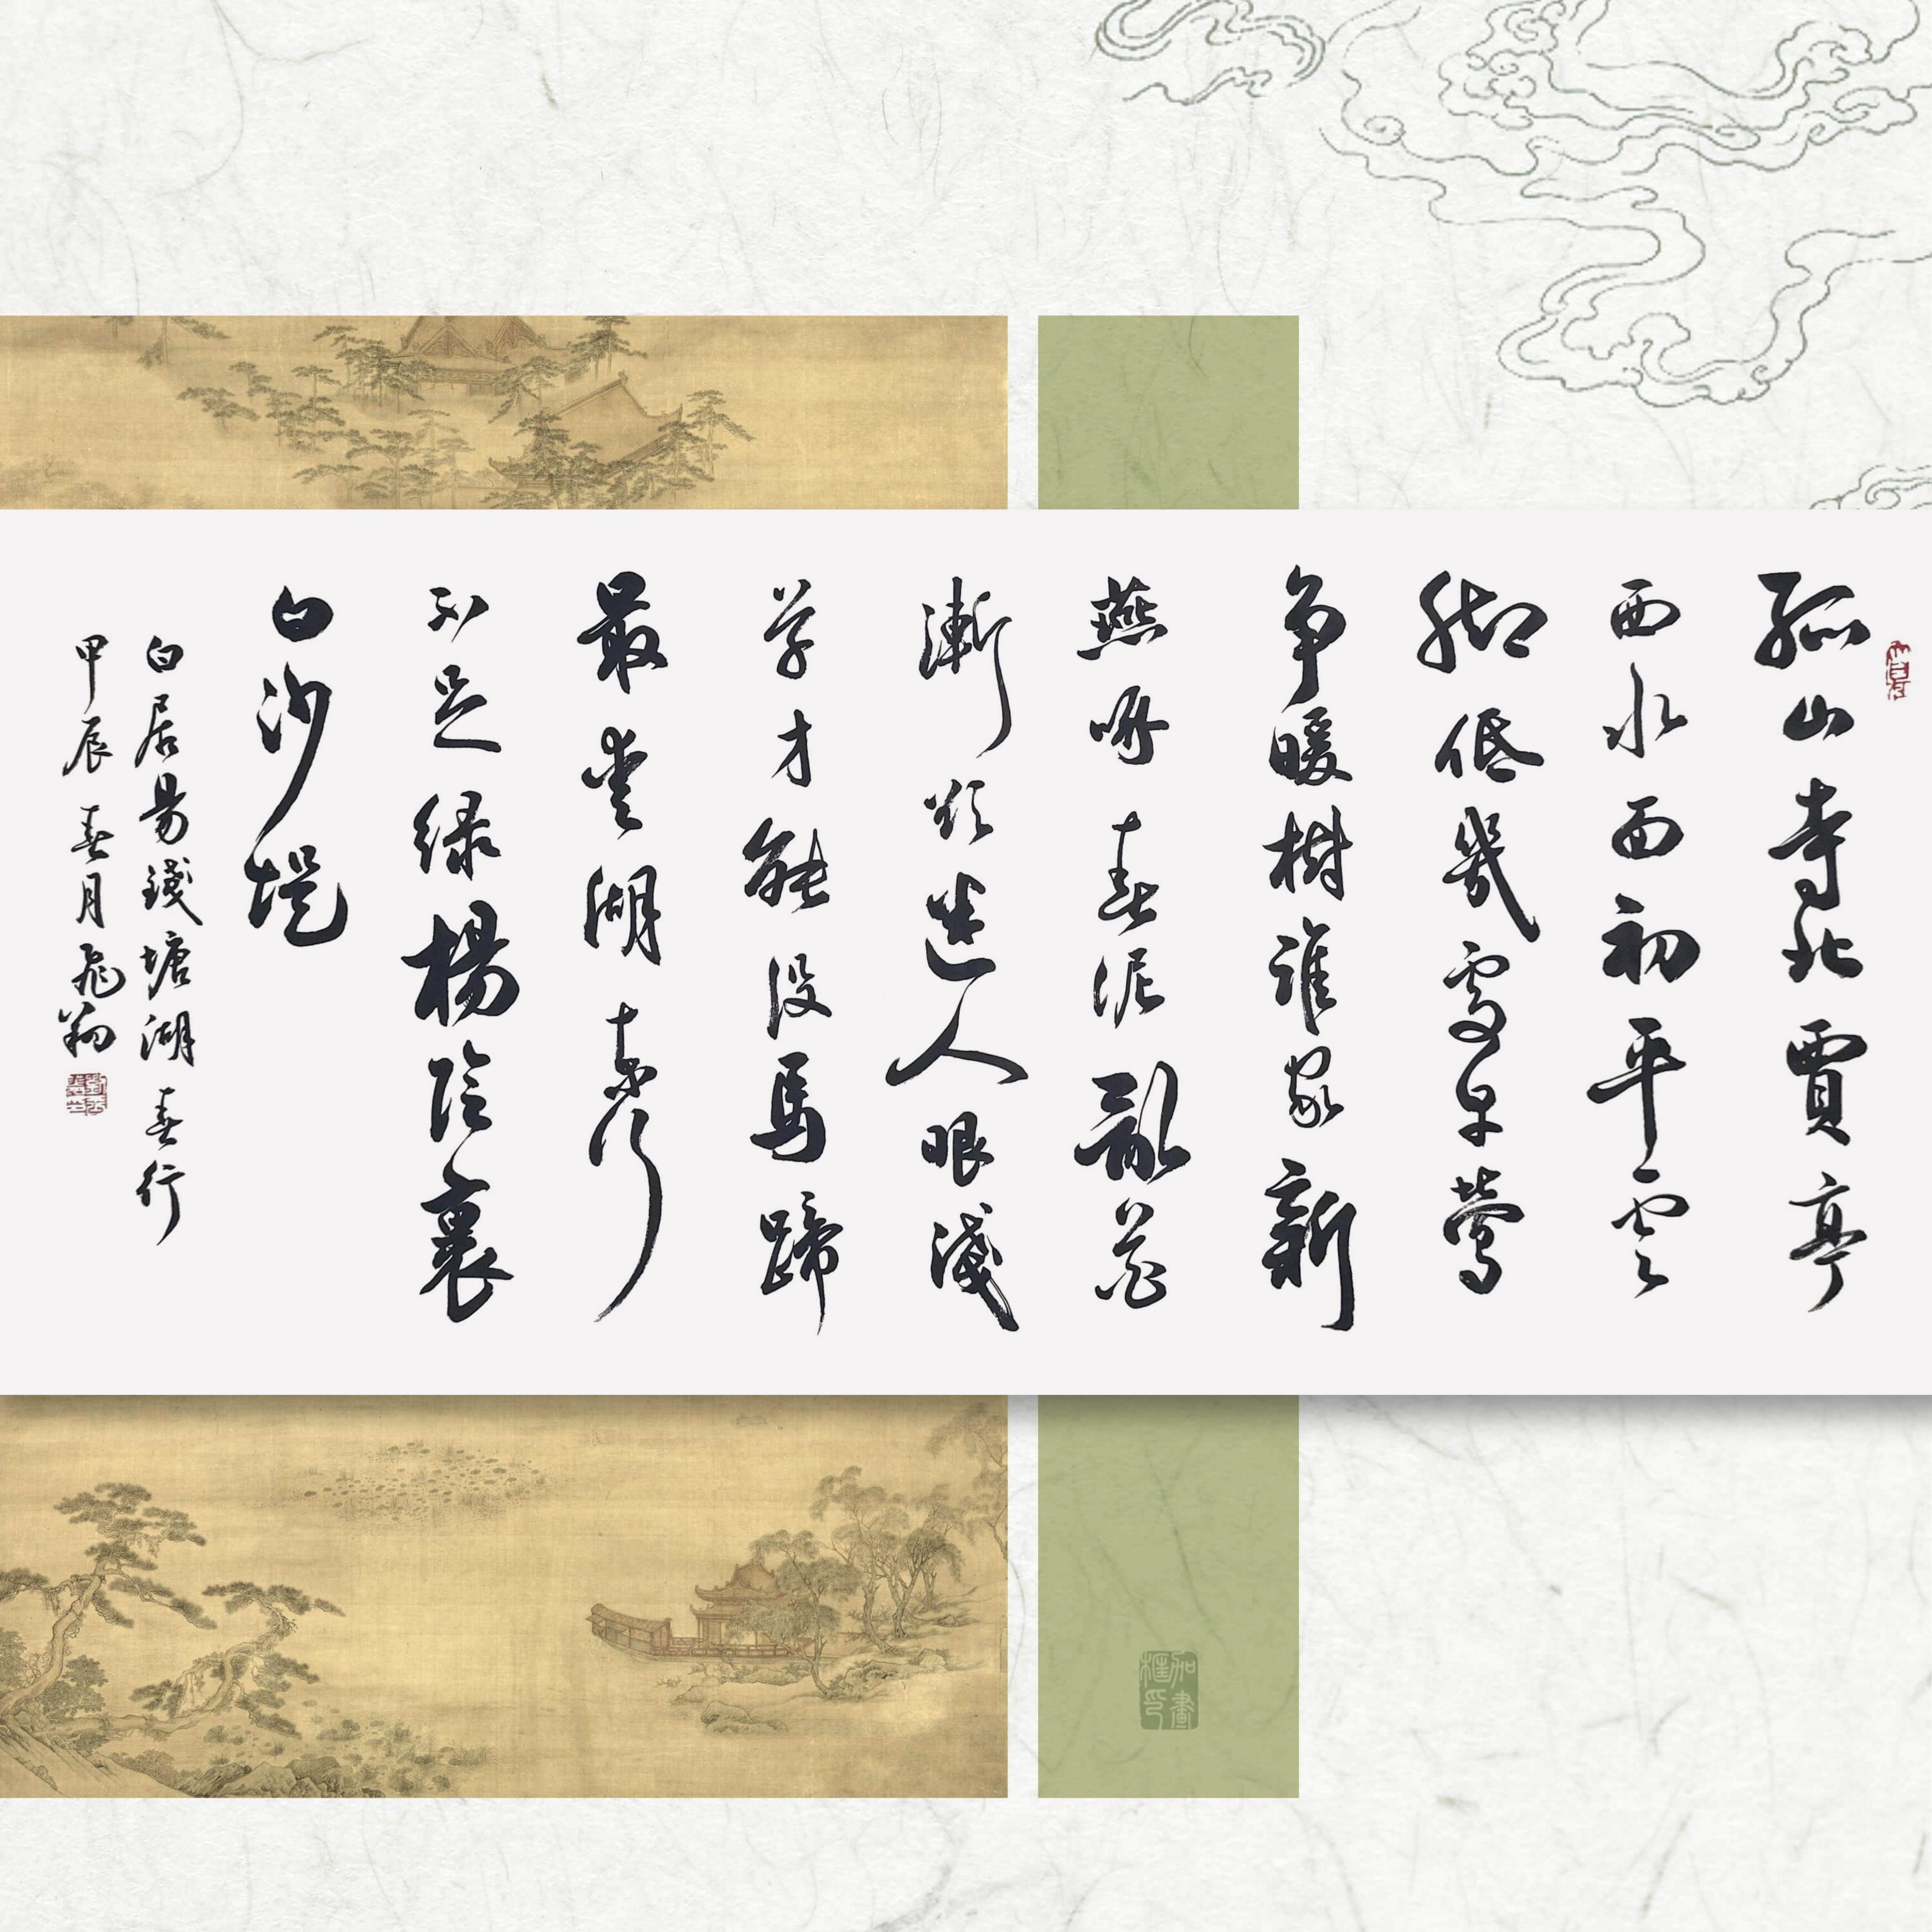 孤山寺北賈亭
西水面初平雲
脚低幾處早鶯
争暖樹誰家新
燕啄春泥亂花
漸欲迷人眼淺
草才能没馬蹄
最愛湖東行
不足绿楊陰裏
白沙堤
白居易錢塘湖春行
甲辰春月飛翔
加畫框印